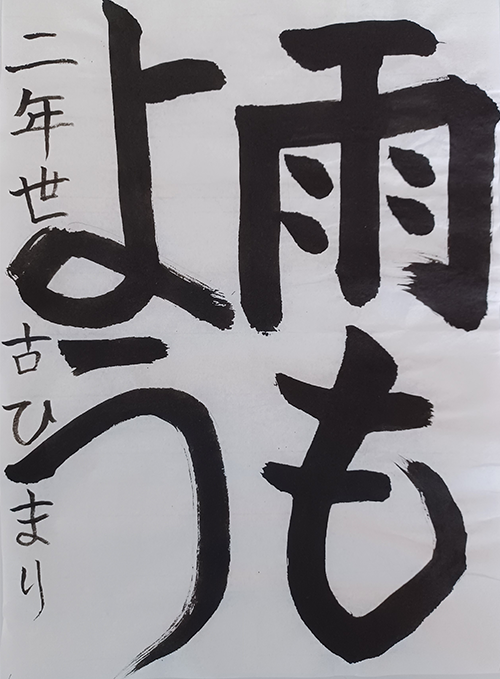 雨も
よう
二年世古ひまり